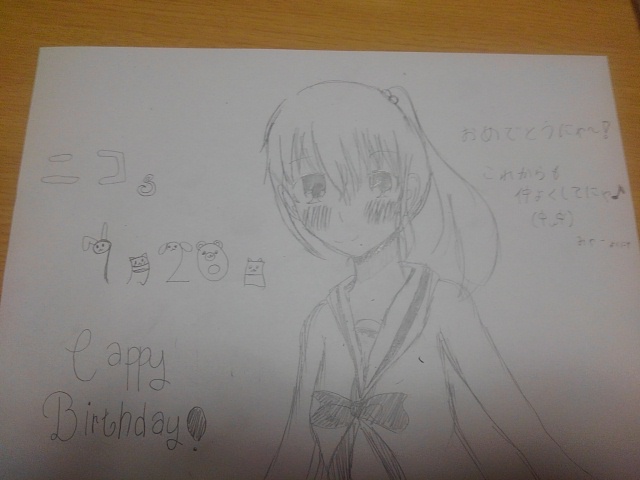 ニコる
9月28日
Happy
Birthday!
おめでとうにゃ〜!
これからも
仲よくしてにゃ♪